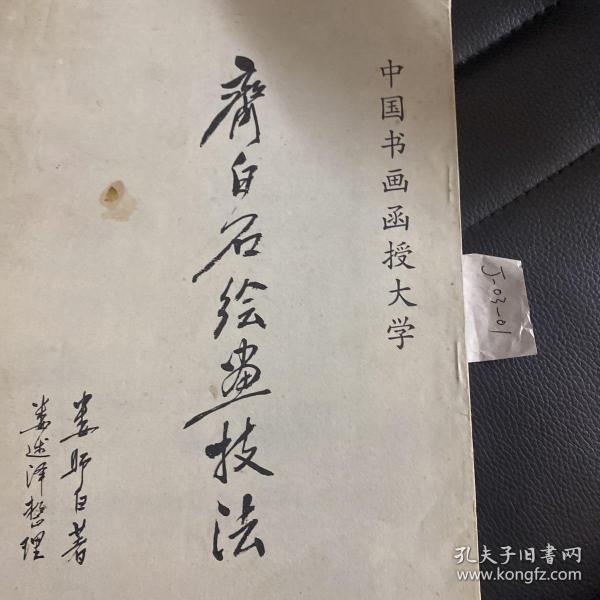 中国书画函授大学
齊白石绘画技法
娄师白著
娄述泽整理
J-03-01
孔夫子旧书网
www.kongfz.com